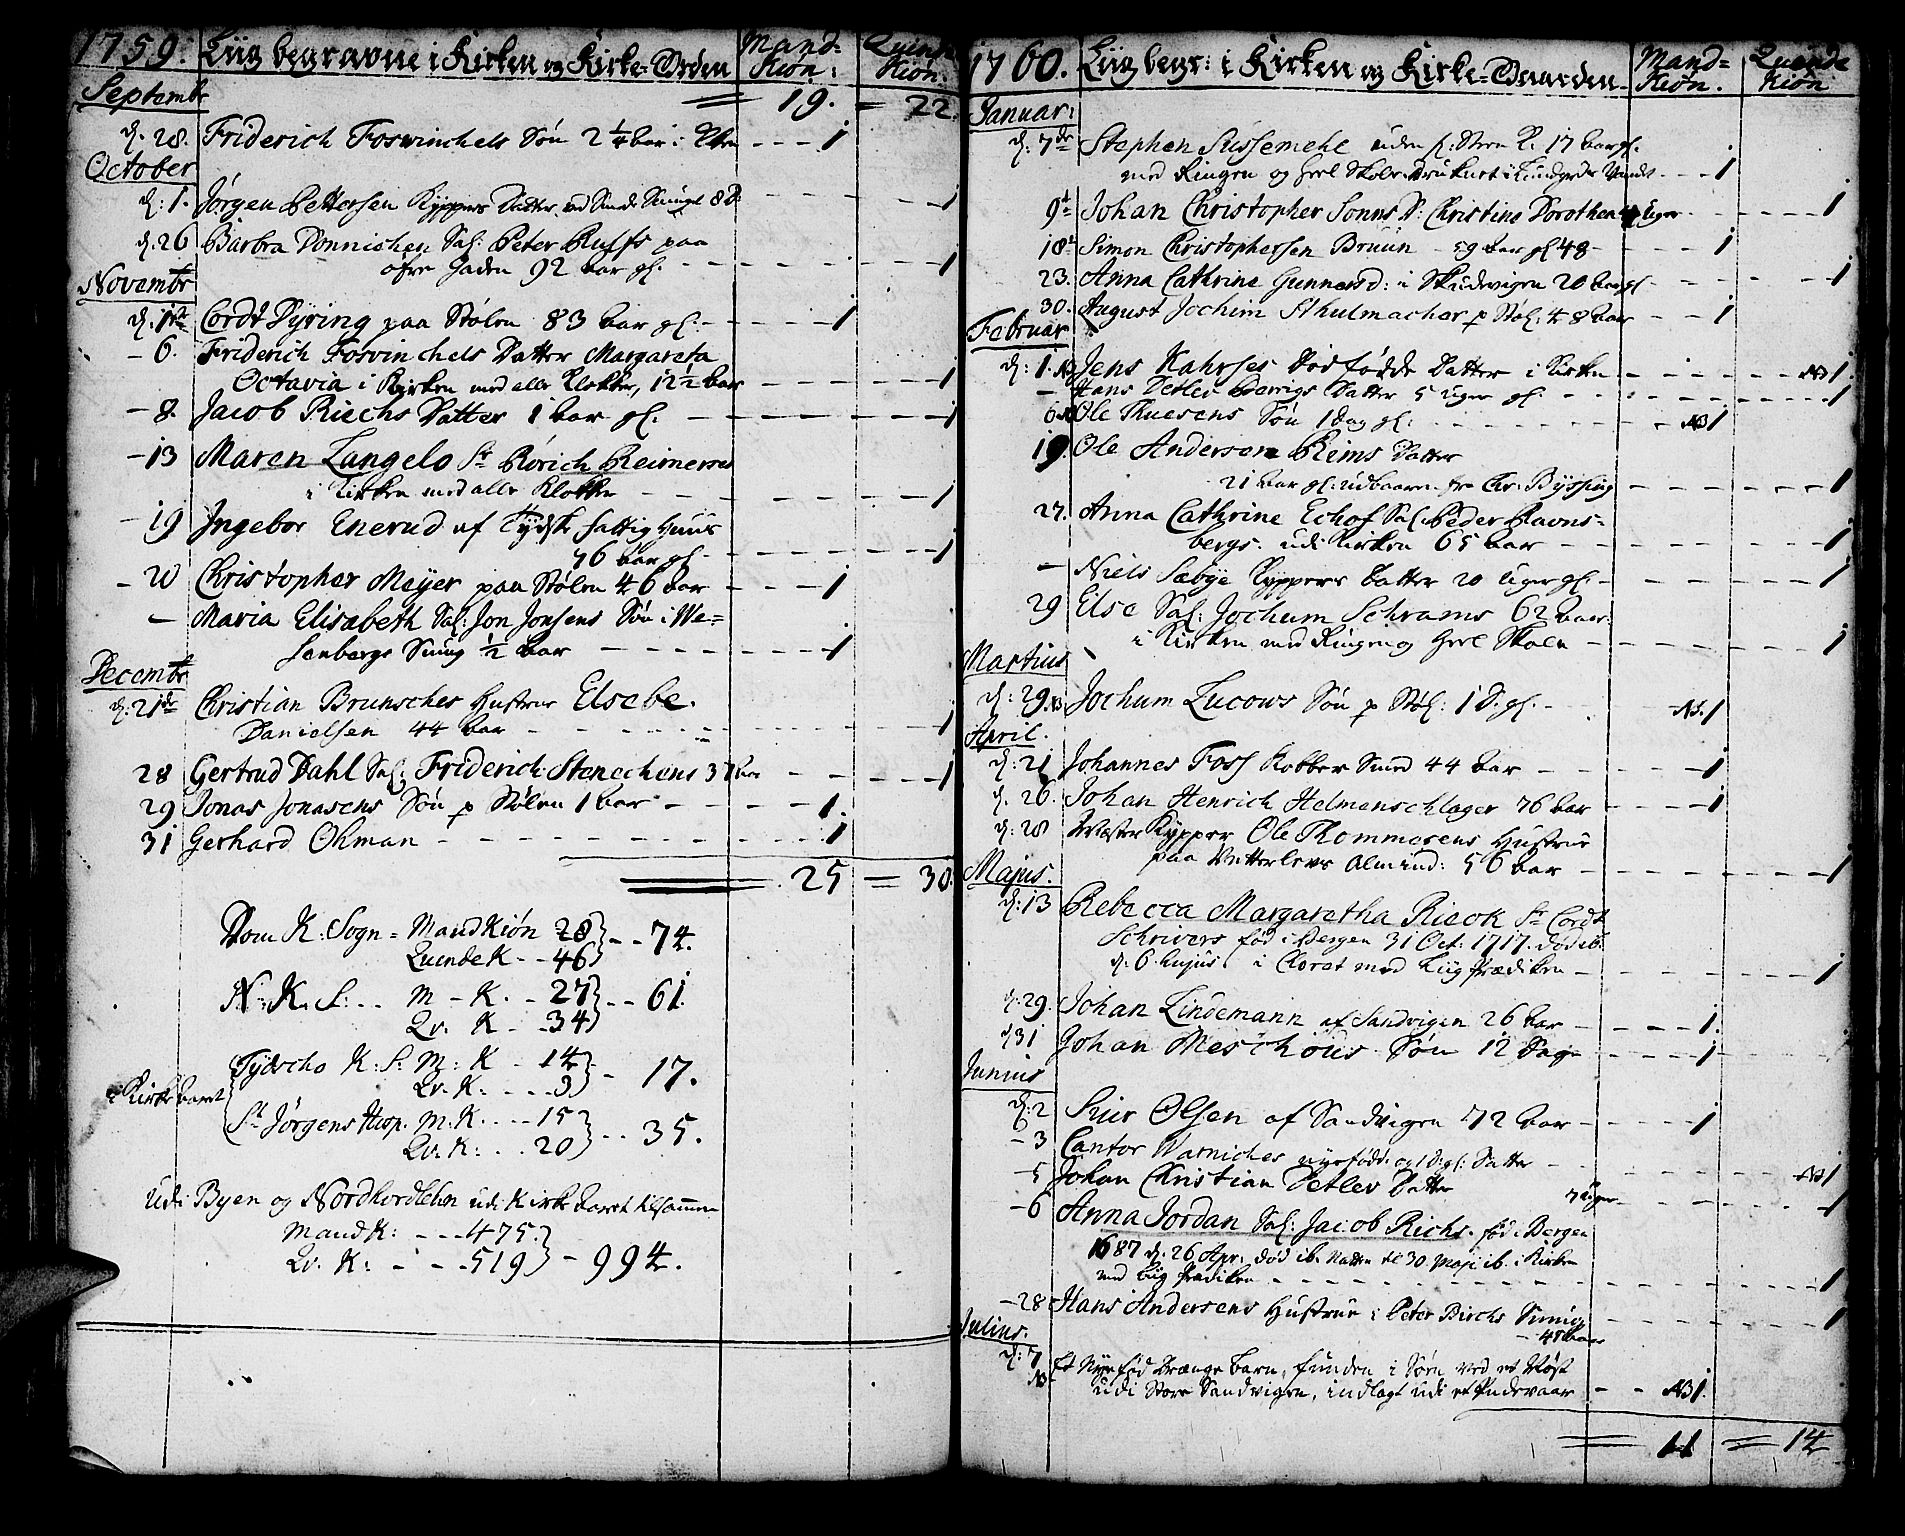 1759. Liig begravne i Kirken og Kirke-Gården Mand-Kiön: Quinde Kiön:
Septembr = 19. = 22.
d. 28. Friderich Foswinchels Sön 2 1/4 aar i Kirken 1
October
d: 1. Jørgen Pettersen Kyppers Datter 8 D: 1
d: 26 Barbra Dønnichen Sal: Peter Rulfs paa
öfre Gaden 92 aar gl. 1
Novembr
d: 1ste Cordt Dyring paa Stølen 83 aar gl. 1
- 6. Friderich Fosvinchels Datter Margareta
Octavia i Kirken med alle Klokker, 12 1/2 aar 1
- 8. Jacob Riechs Datter 1 aar gl. 1
- 13 Maren Langelo Sr Rörich Reimerses
i Kirken med alle Klokker 1
- 19 Ingebor Enerud af Tydsk fattig Huus
76 aar gl. 1
- 20 Christopher Meyer paa Stølen 46 aar 1
- Maria Elisabeth Sal: Jon Jonsens Sön i We-
senbergs Smug 1/2 aar 1
Decembr
d: 21de Christian Brunsches Hustrue Elsebe
Danielsen 44 aar 1
28 Gertrud Dahl Sal: Friderich Stenechens 37 aar 1
29 Jonas Jonasens Sön p Stølen 1 aar 1.
31 Gerhard Ohman 1
25 = 30.
Dom K: Sogn = Mand Kiön 28 } 74.
Quinde K - 46
N: K. S: .. M - K. .. 27 } .. 61
Qv. K. .. 34
Tydsche K: S: M: K - 14 } - 17.
Qv. K. .... 3
i Kirkeaaret
St Jørgens Hosp. M. K. ... 15 } .. 35.
Qv. K: ... 20
udi Byen og Nordhordlehn udi Kirke aaret tilsammen
Mand K: - - - 475. } - 994.
Qv. K: - - - 519
1760. Liig begr: i Kirken og Kirke-Gaarden Mand-Kiön. Quinde Kiön
Januar:
d: 7de Stephen Süssemehl 17 aar gl.
med Ringen og heel Skole 1
9de Johan Christopher Sonns D: Christine Dorothea uger 1
18de Simon Christophersen Bruun - 59 aar gl 48 - 1
23. Anna Cathrine Gunnersd: i Skudevigen 20 aar gl 1
30. August Jochim Sthulmacher p Støl: 48 aar 1
Februar
d: 1. NB Jens Kahrses død födde Datter i Kirken NB 1
- Hans Detlev Datter 5 uger gl. 1
6 NB Ole Thuesens Sön 1 Dag gl. NB 1
19 Ole Anderson Reims Datter
21 aar gl: udbaaren fra Chr: Byssing 1
27. Anna Cathrine Echof Sal: Peder Ravns-
bergs. udi Kirken 65 aar 1
- Niels Sæbye Kyppers Datter 20 Uger gl. 1
29 Else Sal: Jochum Schrams 62 aar:
i Kirken med Ringen og heel Skole 1
Martius
d: 29. NB Jochum Lucows Sön p Støl: 1 D. gl. NB. 1
April.
d: 21 Johannes Foss Kobber Smed 44 aar 1
d. 26. Johan Henrich Helmenschlager 76 aar 1
d: 28 Kypper Ole Thommesens Hustrue
paa Almind: 56 aar 1
Majus.
d: 13 Rebecca Margaretha Rieck Sr Cordt
Schrivers fød i Bergen 31 Oct: 1717. død ib.
d. 6. hujus i Choret med Liig Prædiken 1
d: 29. Johan Lindemann af Sandvigen 26 aar 1.
d 31 Johan Meschöus Sön 12 Dage 1
Junius
d: 2 Siur Olsen af Sandvigen 72 aar 1
- 3 Cantor Warniches nyefödde og 1 D: gl: Datter NB 1
- 5 Johan Christian Detlev Datter 7 uger 1
- 6 Anna Jordan Sal: Jacob Richs. fød i Bergen
1687 d. 26 Apr. død ib. Natten til 30. Maji ib. i Kirken
med Liig Prædiken 1
- 28 Hans Andersens Hustrue i Peter Birchs Smug
- 48 aar 1
Julius.
d: 7 NB Et Nyefød Drænge Barn, funden i Søen ved et Nöst
udi Store Sandvigen, indlagt udi et Pudevaar NB 1.
= 11 = 14